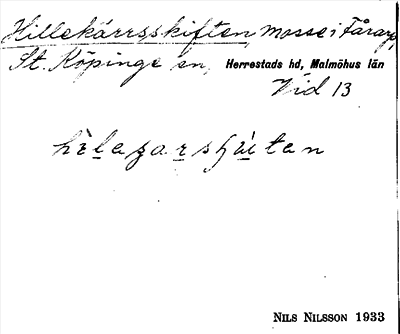 Hillekärrsskiften, mosse i Fårarp,
St. Köpinge sn, Herrestads hd, Malmöhus län
Vid 13
NILS NILSSON 1933